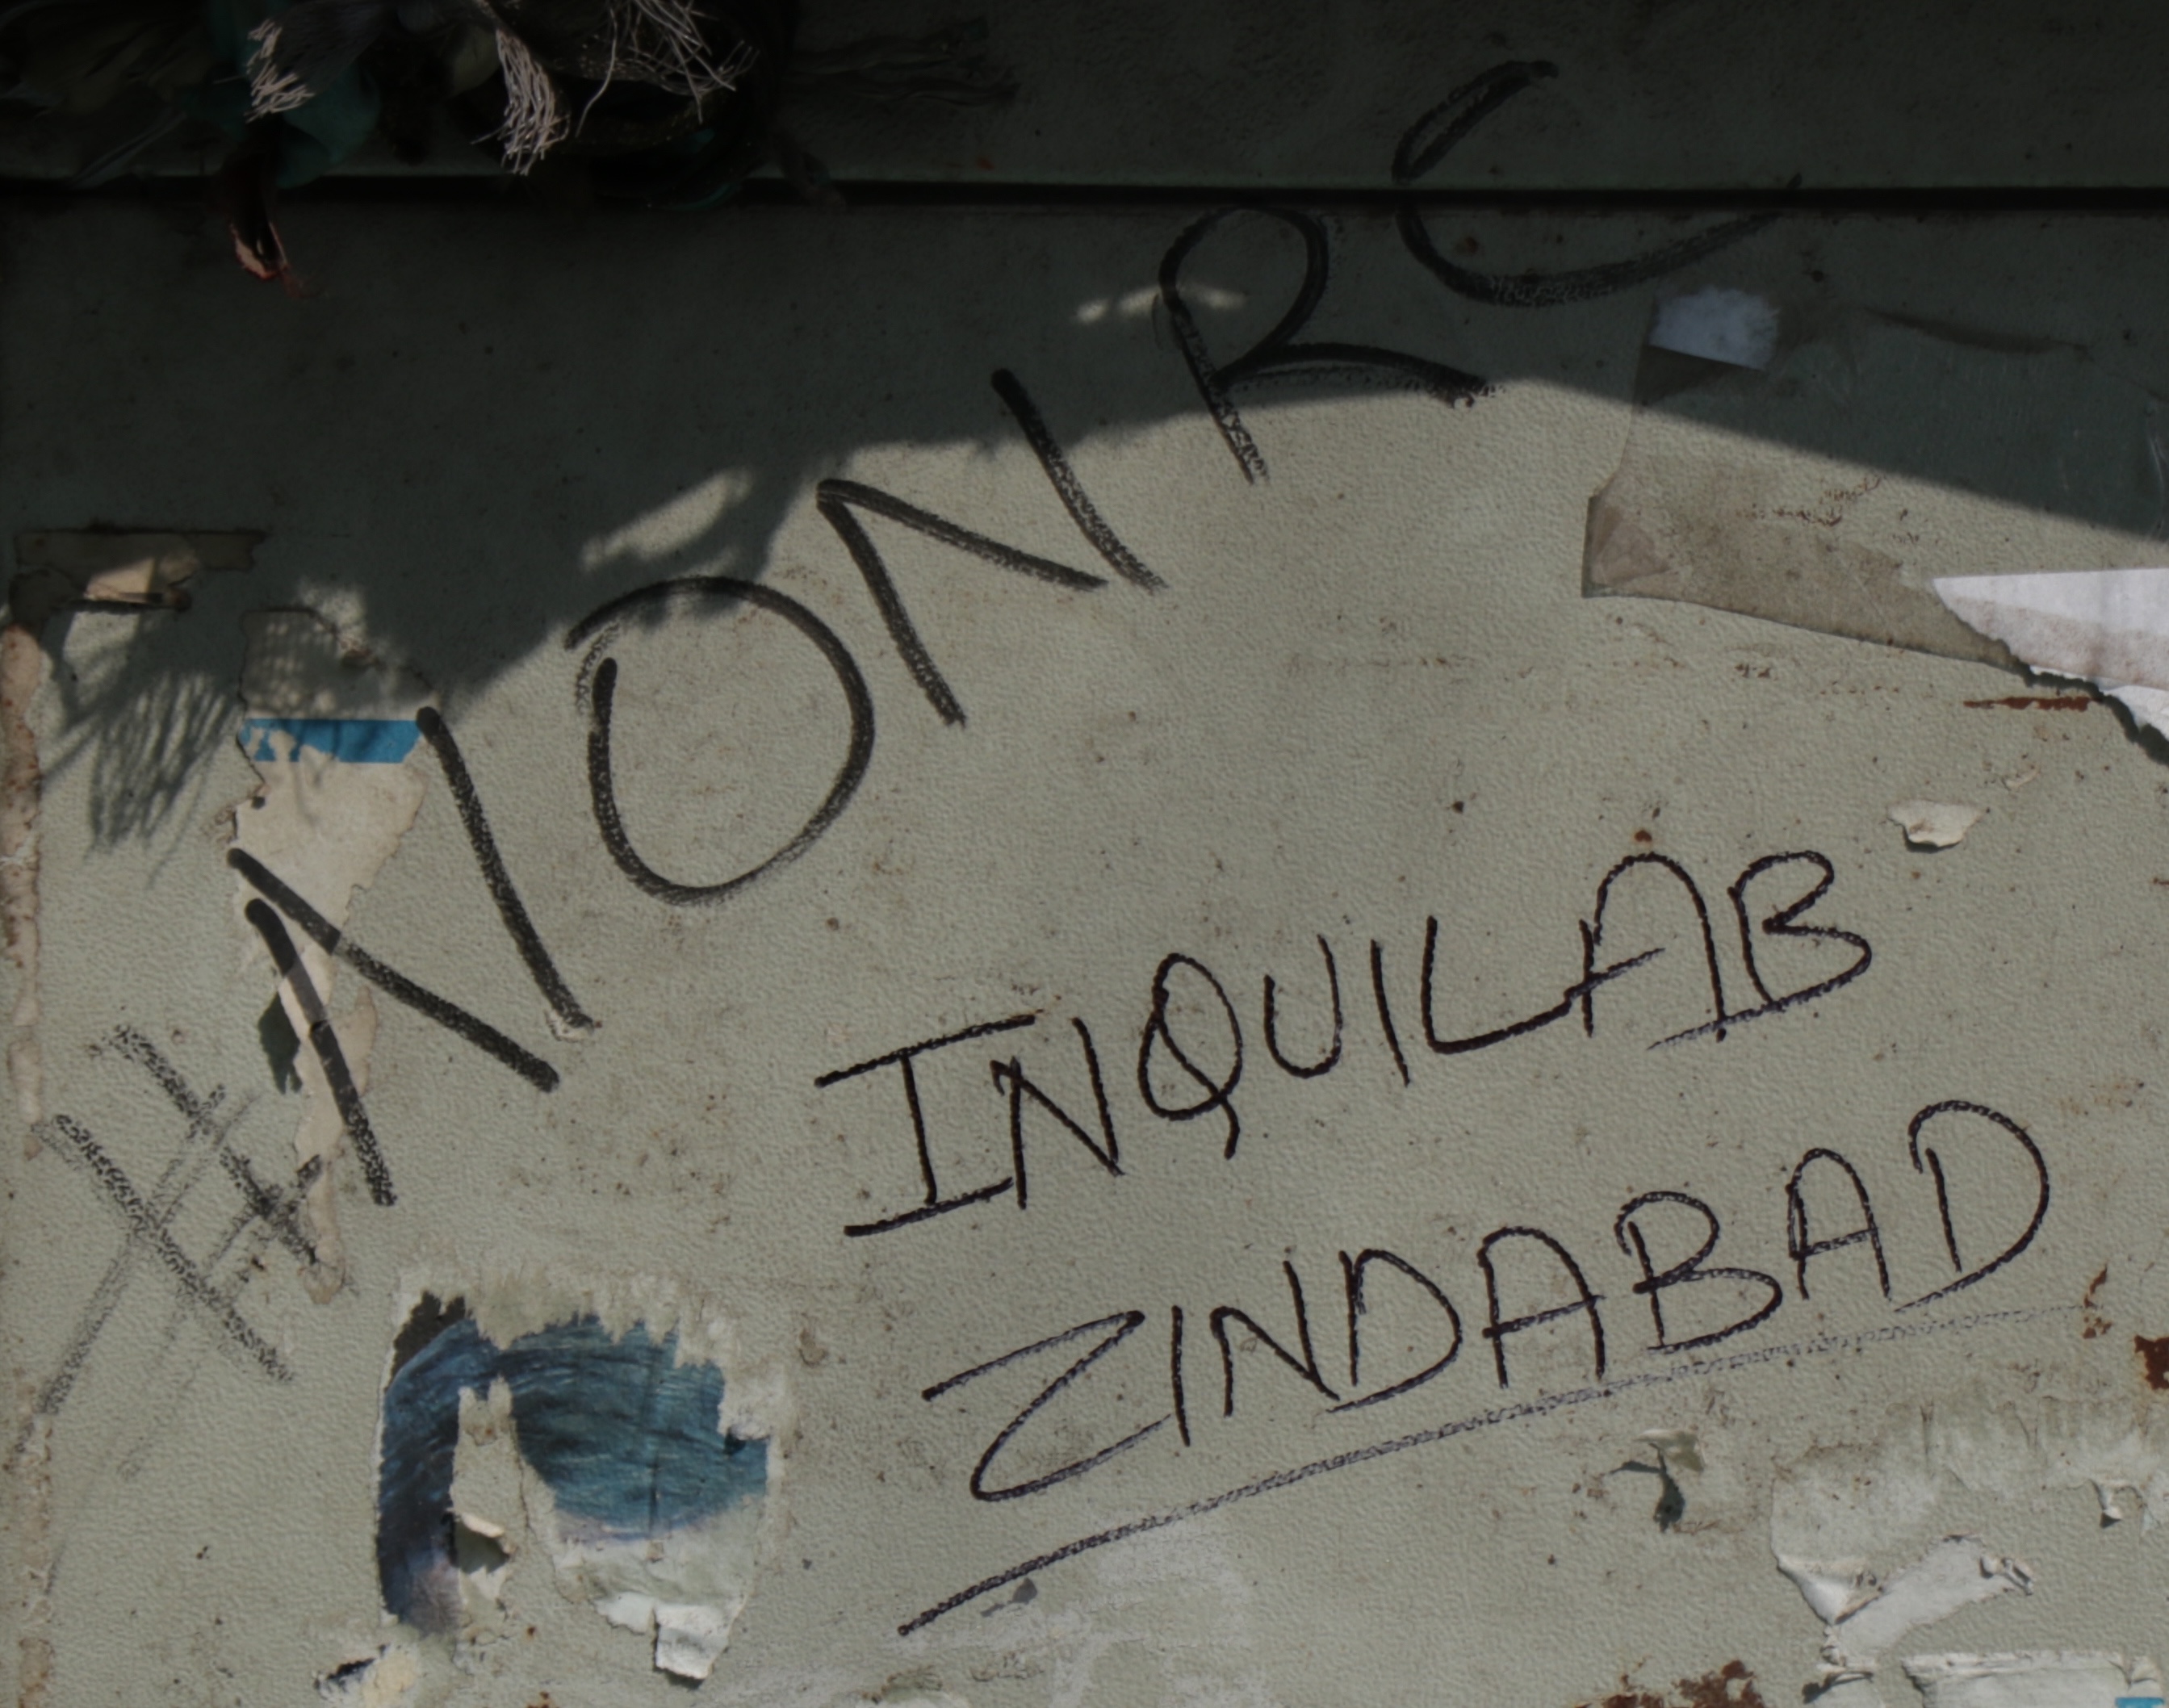 #NONRC
INQUILAB
ZINDABAD